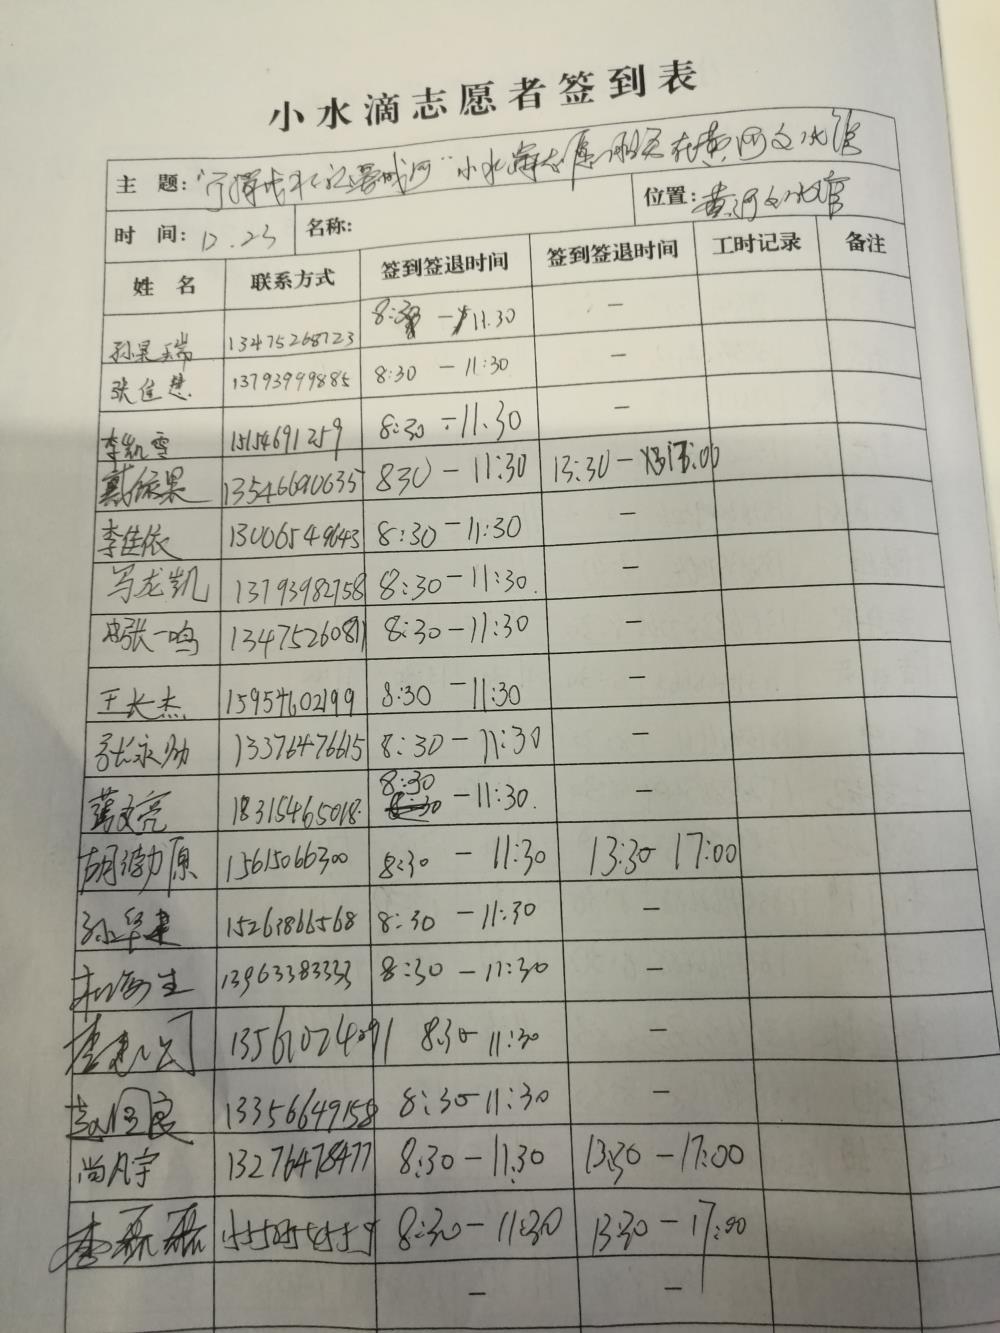 小水滴志愿者签到表
主 题: 小水滴志愿服务在黄河文化馆
时 间: 12.23 名称: 位置: 黄河文化馆
姓 名 联系方式 签到签退时间 签到签退时间 工时记录 备注
孙昊瑞 13475268723 8:30 - 11:30 -
张佳慧 13793999885 8:30 - 11:30 -
李凯雪 15154691259 8:30 - 11:30 -
戴依果 13546690635 830 - 11:30 13:30 - 17:00
李佳依 13006549643 8:30 - 11:30 -
马龙凯 13793982758 8:30 - 11:30 -
张一鸣 13475260811 8:30 - 11:30 -
王长杰 15954602199 8:30 - 11:30 -
张永勋 13376476615 8:30 - 11:30 -
文亮 18315465018 8:30 - 11:30 -
胡渤原 15615066300 8:30 - 11:30 13:30 - 17:00
孙华建 15263866568 8:30 - 11:30 -
生 13963383333 8:30 - 11:30 -
李建公 13561024091 8:30 - 11:30 -
赵国良 13356649158 8:30 - 11:30 -
尚凡宇 13276478477 8:30 - 11:30 13:30 - 17:00
李磊磊 8:30 - 11:30 13:30 - 17:00
- -